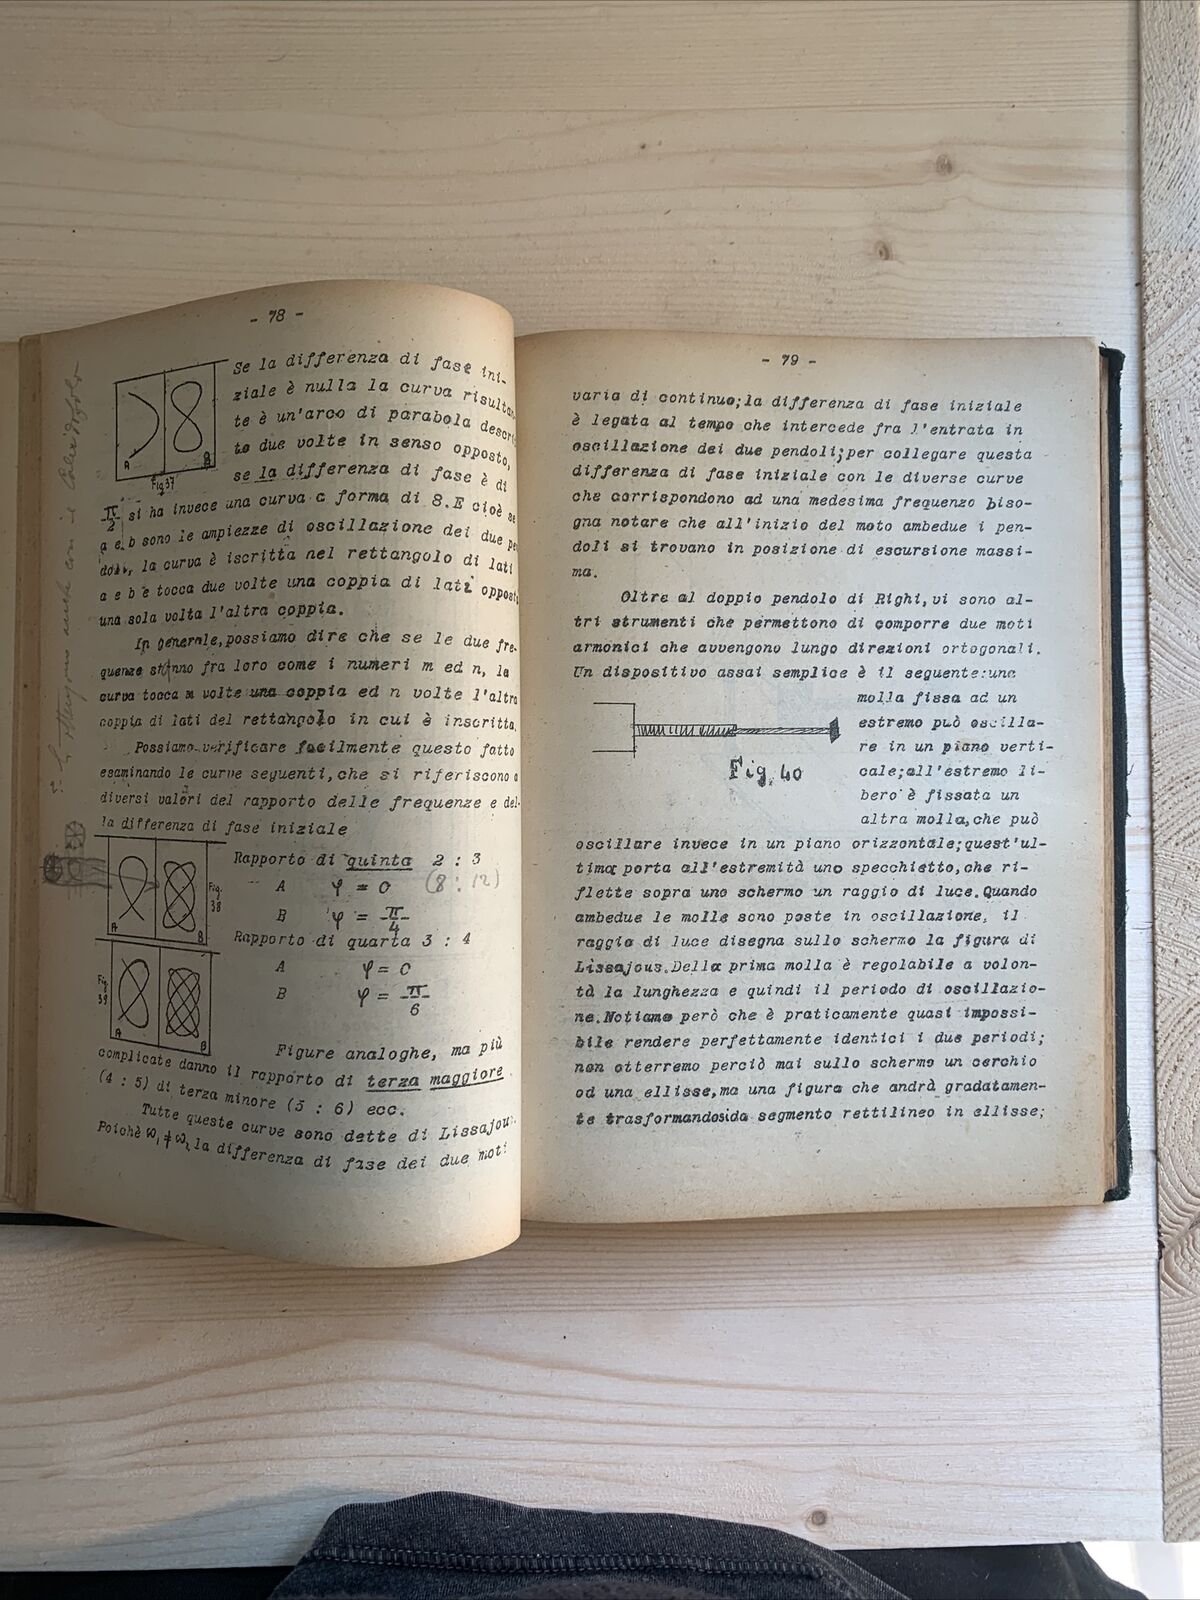 - 78 -
Se la differenza di fase ini-
ziale è nulla la curva risultan
te è un'arco di parabola descrit
to due volte in senso opposto,
se la differenza di fase è di
A B
Fig 37
π/2 si ha invece una curva a forma di 8. E cioè se
a e b sono le ampiezze di oscillazione dei due pen
doli, la curva è iscritta nel rettangolo di lati
a e b e tocca due volte una coppia di lati opposti
una sola volta l'altra coppia.
In generale, possiamo dire che se le due fre-
quenze stanno fra loro come i numeri m ed n, la
curva tocca m volte una coppia ed n volte l'altra
coppia di lati del rettangolo in cui è inscritta.
Possiamo verificare facilmente questo fatto
esaminando le curve seguenti, che si riferiscono a
diversi valori del rapporto delle frequenze e del-
la differenza di fase iniziale
Rapporto di quinta 2 : 3
A φ = 0 (8 : 12)
B φ = π/4
B
Fig. 38
Rapporto di quarta 3 : 4
A φ = 0
B φ = π/6
A B
Fig. 39
Figure analoghe, ma più
complicate danno il rapporto di terza maggiore
(4 : 5) di terza minore (5 : 6) ecc.
Tutte queste curve sono dette di Lissajous.
Poichè ω₁ ≠ ω₂ la differenza di fase dei due moti
anche con il
- 79 -
varia di continuo; la differenza di fase iniziale
è legata al tempo che intercede fra l'entrata in
oscillazione dei due pendoli; per collegare questa
differenza di fase iniziale con le diverse curve
che corrispondono ad una medesima frequenza biso-
gna notare che all'inizio del moto ambedue i pen-
doli si trovano in posizione di escursione massi-
ma.
Oltre al doppio pendolo di Righi, vi sono al-
tri strumenti che permettono di comporre due moti
armonici che avvengono lungo direzioni ortogonali.
Un dispositivo assai semplice è il seguente: una
molla fissa ad un
estremo può oscilla-
re in un piano verti-
cale; all'estremo li-
bero è fissata un
altra molla, che può
Fig. 40
oscillare invece in un piano orizzontale; quest'ul-
tima porta all'estremità uno specchietto, che ri-
flette sopra uno schermo un raggio di luce. Quando
ambedue le molle sono poste in oscillazione, il
raggio di luce disegna sullo schermo la figura di
Lissajous. Della prima molla è regolabile a volon-
tà la lunghezza e quindi il periodo di oscillazio-
ne. Notiamo però che è praticamente quasi impossi-
bile rendere perfettamente identici i due periodi;
non otterremo perciò mai sullo schermo un cerchio
od una ellisse, ma una figura che andrà gradatamen-
te trasformandosi da segmento rettilineo in ellisse;